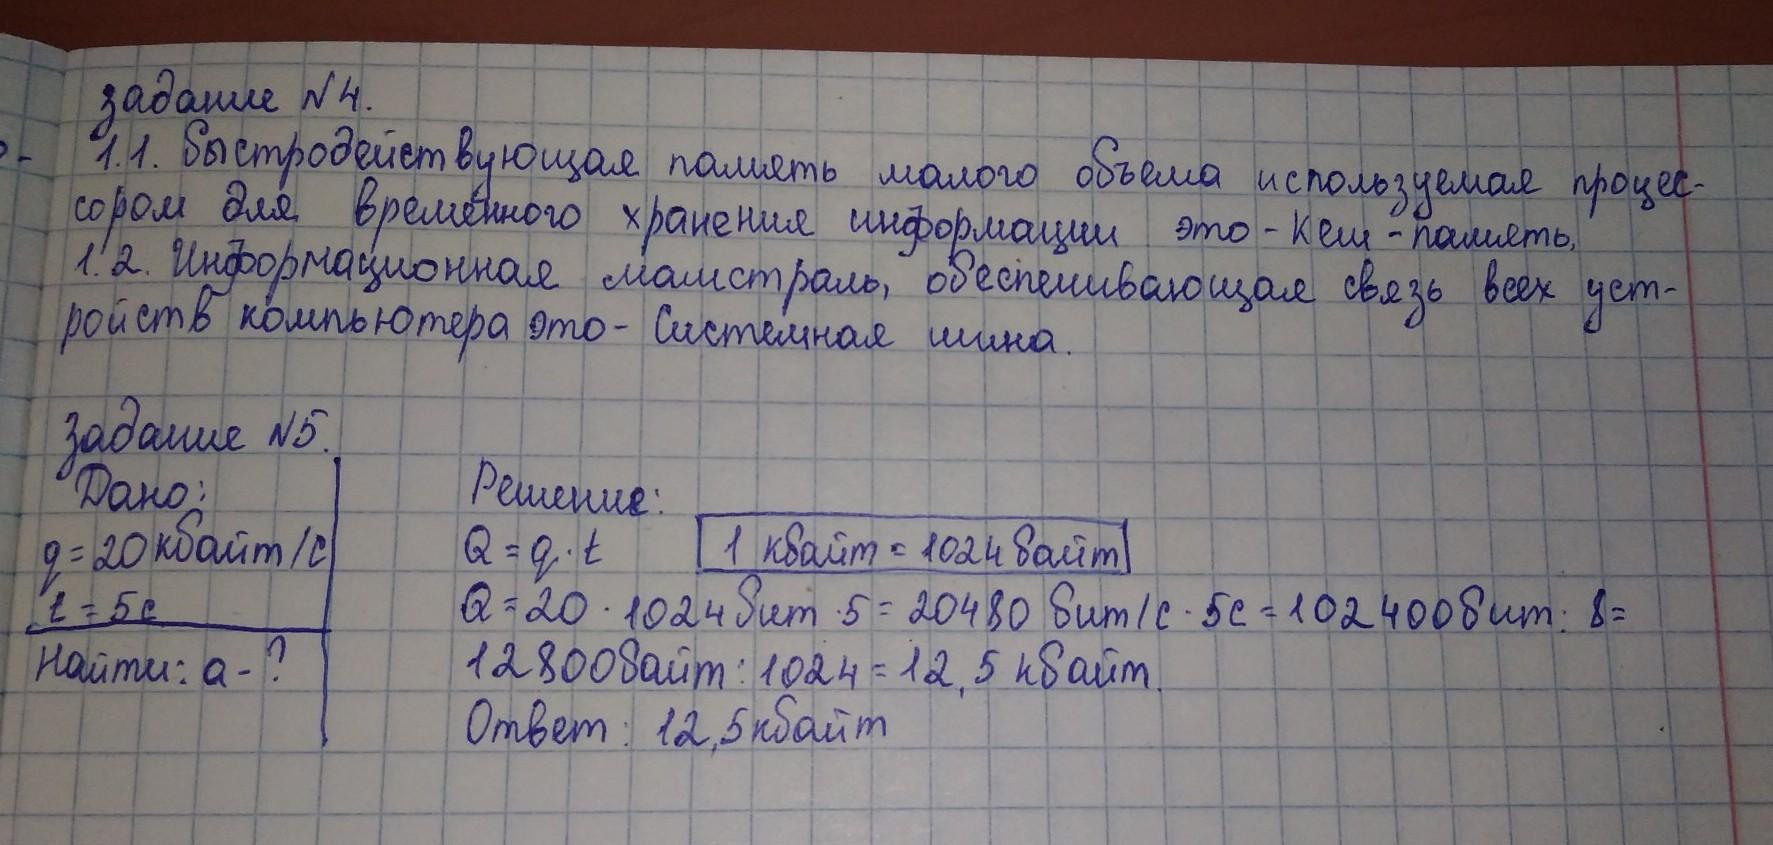 задание №4.
1.1. Быстродействующая память малого объема используемая процес-
сором для временного хранения информации это - Кеш - память.
1.2. Информационная магистраль, обеспечивающая связь всех уст-
ройств компьютера это - Системная шина.
Задание №5.
Дано:
q = 20 кбайт/с
t = 5с
Найти: a - ?
Решение:
Q = q · t 1 кбайт = 1024 байт
Q = 20 · 1024 бит · 5 = 20480 бит/с · 5с = 102400 бит : 8 =
12800 байт : 1024 = 12,5 кбайт.
Ответ: 12,5 кбайт